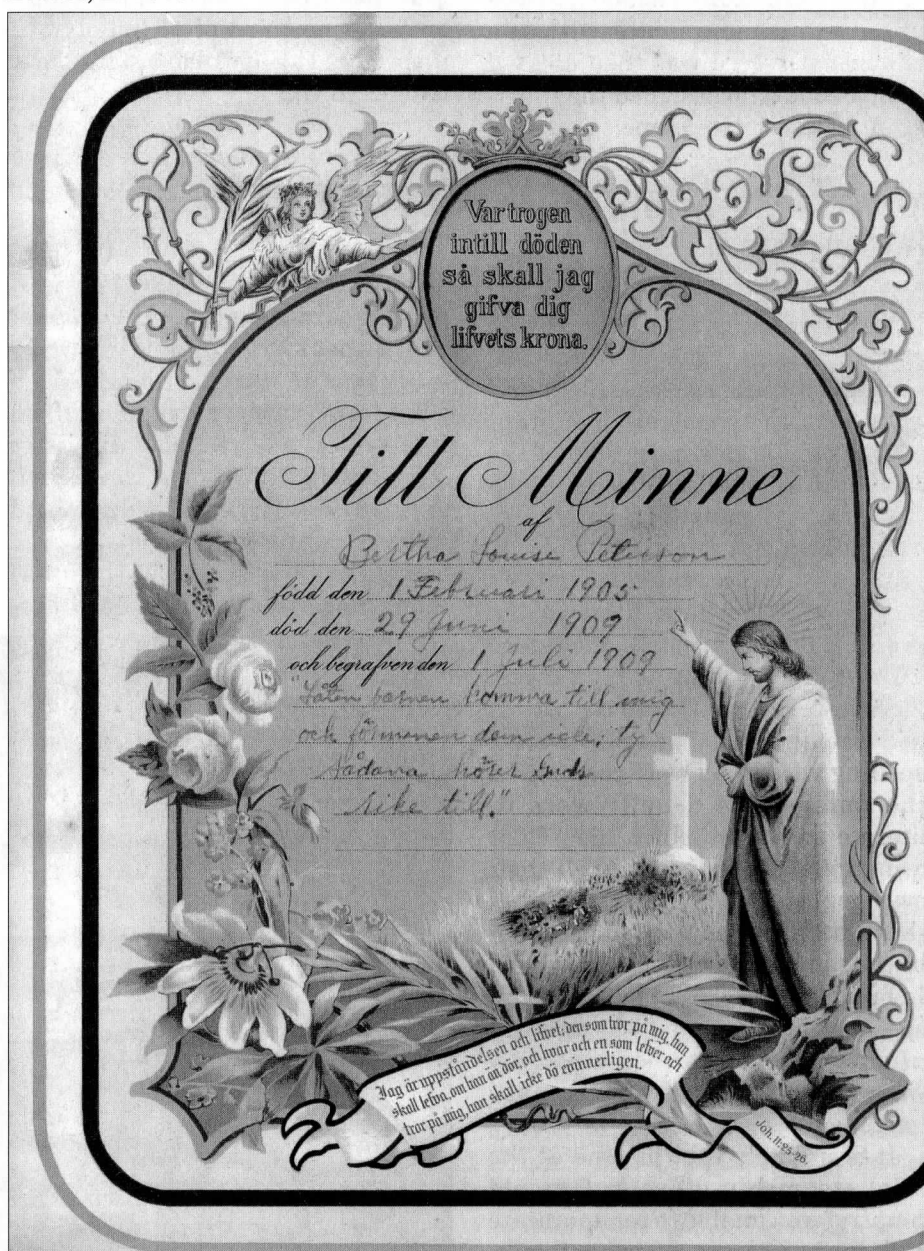 Var trogen
intill döden
så skall jag
gifva dig
lifvets krona.
Till Minne
af
Bertha Louise Peterson
född den 1 Februari 1905
död den 29 Juni 1909
och begrafven den 1 Juli 1909
"Låten barnen komma till mig
och förmenen dem icke; ty
sådana hörer Guds
rike till."
Jag är uppståndelsen och lifvet; den som tror på mig, han
skall lefva, om han än dör, och hvar och en som lefver och
tror på mig, han skall icke dö evinnerligen.
Joh. 11:25-26.